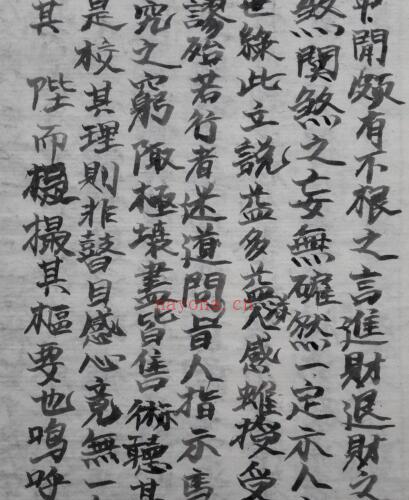 中間頗有不根之言進財退財之
煞關煞之妄無確然一定示人
世緣此立說益多益惑感雖授受
謬殆若行者迷道問盲人指示焉
究之窮陬極壤盡皆售術聽其
是校其理則非瞽目惑心竟無一
其陛而撮其樞要也嗚呼
nayona.cn